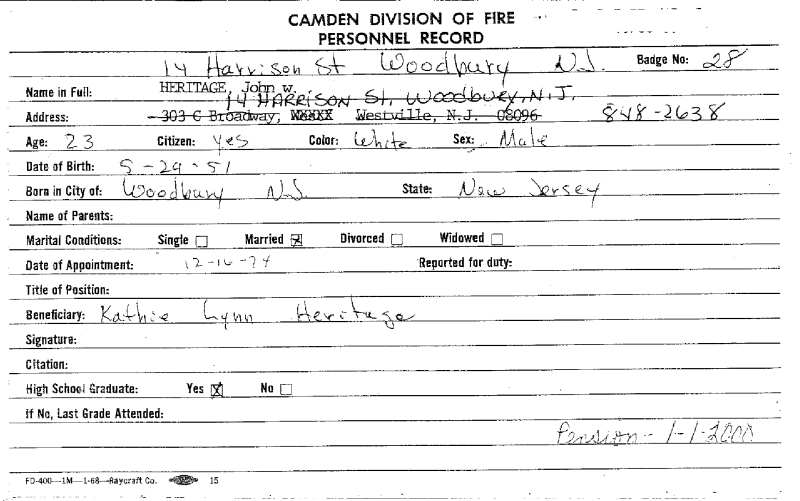 CAMDEN DIVISION OF FIRE
PERSONNEL RECORD
14 Harrison St Woodbury N.J. Badge No: 28
Name in Full: HERITAGE, John w.
14 HARRISON St. WOODBURY, N.J.
Address: 303 C Broadway, Westville, N.J. 08096 848-2638
Age: 23 Citizen: Yes Color: White Sex: Male
Date of Birth: 5-29-51
Born in City of: Woodbury NJ State: New Jersey
Name of Parents:
Marital Conditions: Single ☐ Married ☒ Divorced ☐ Widowed ☐
Date of Appointment: 12-16-74 Reported for duty:
Title of Position:
Beneficiary: Kathie Lynn Heritage
Signature:
Citation:
High School Graduate: Yes ☒ No ☐
If No, Last Grade Attended:
Pension - 1-1-2000
FD-400—1M—1-68—Raycraft Co. 15